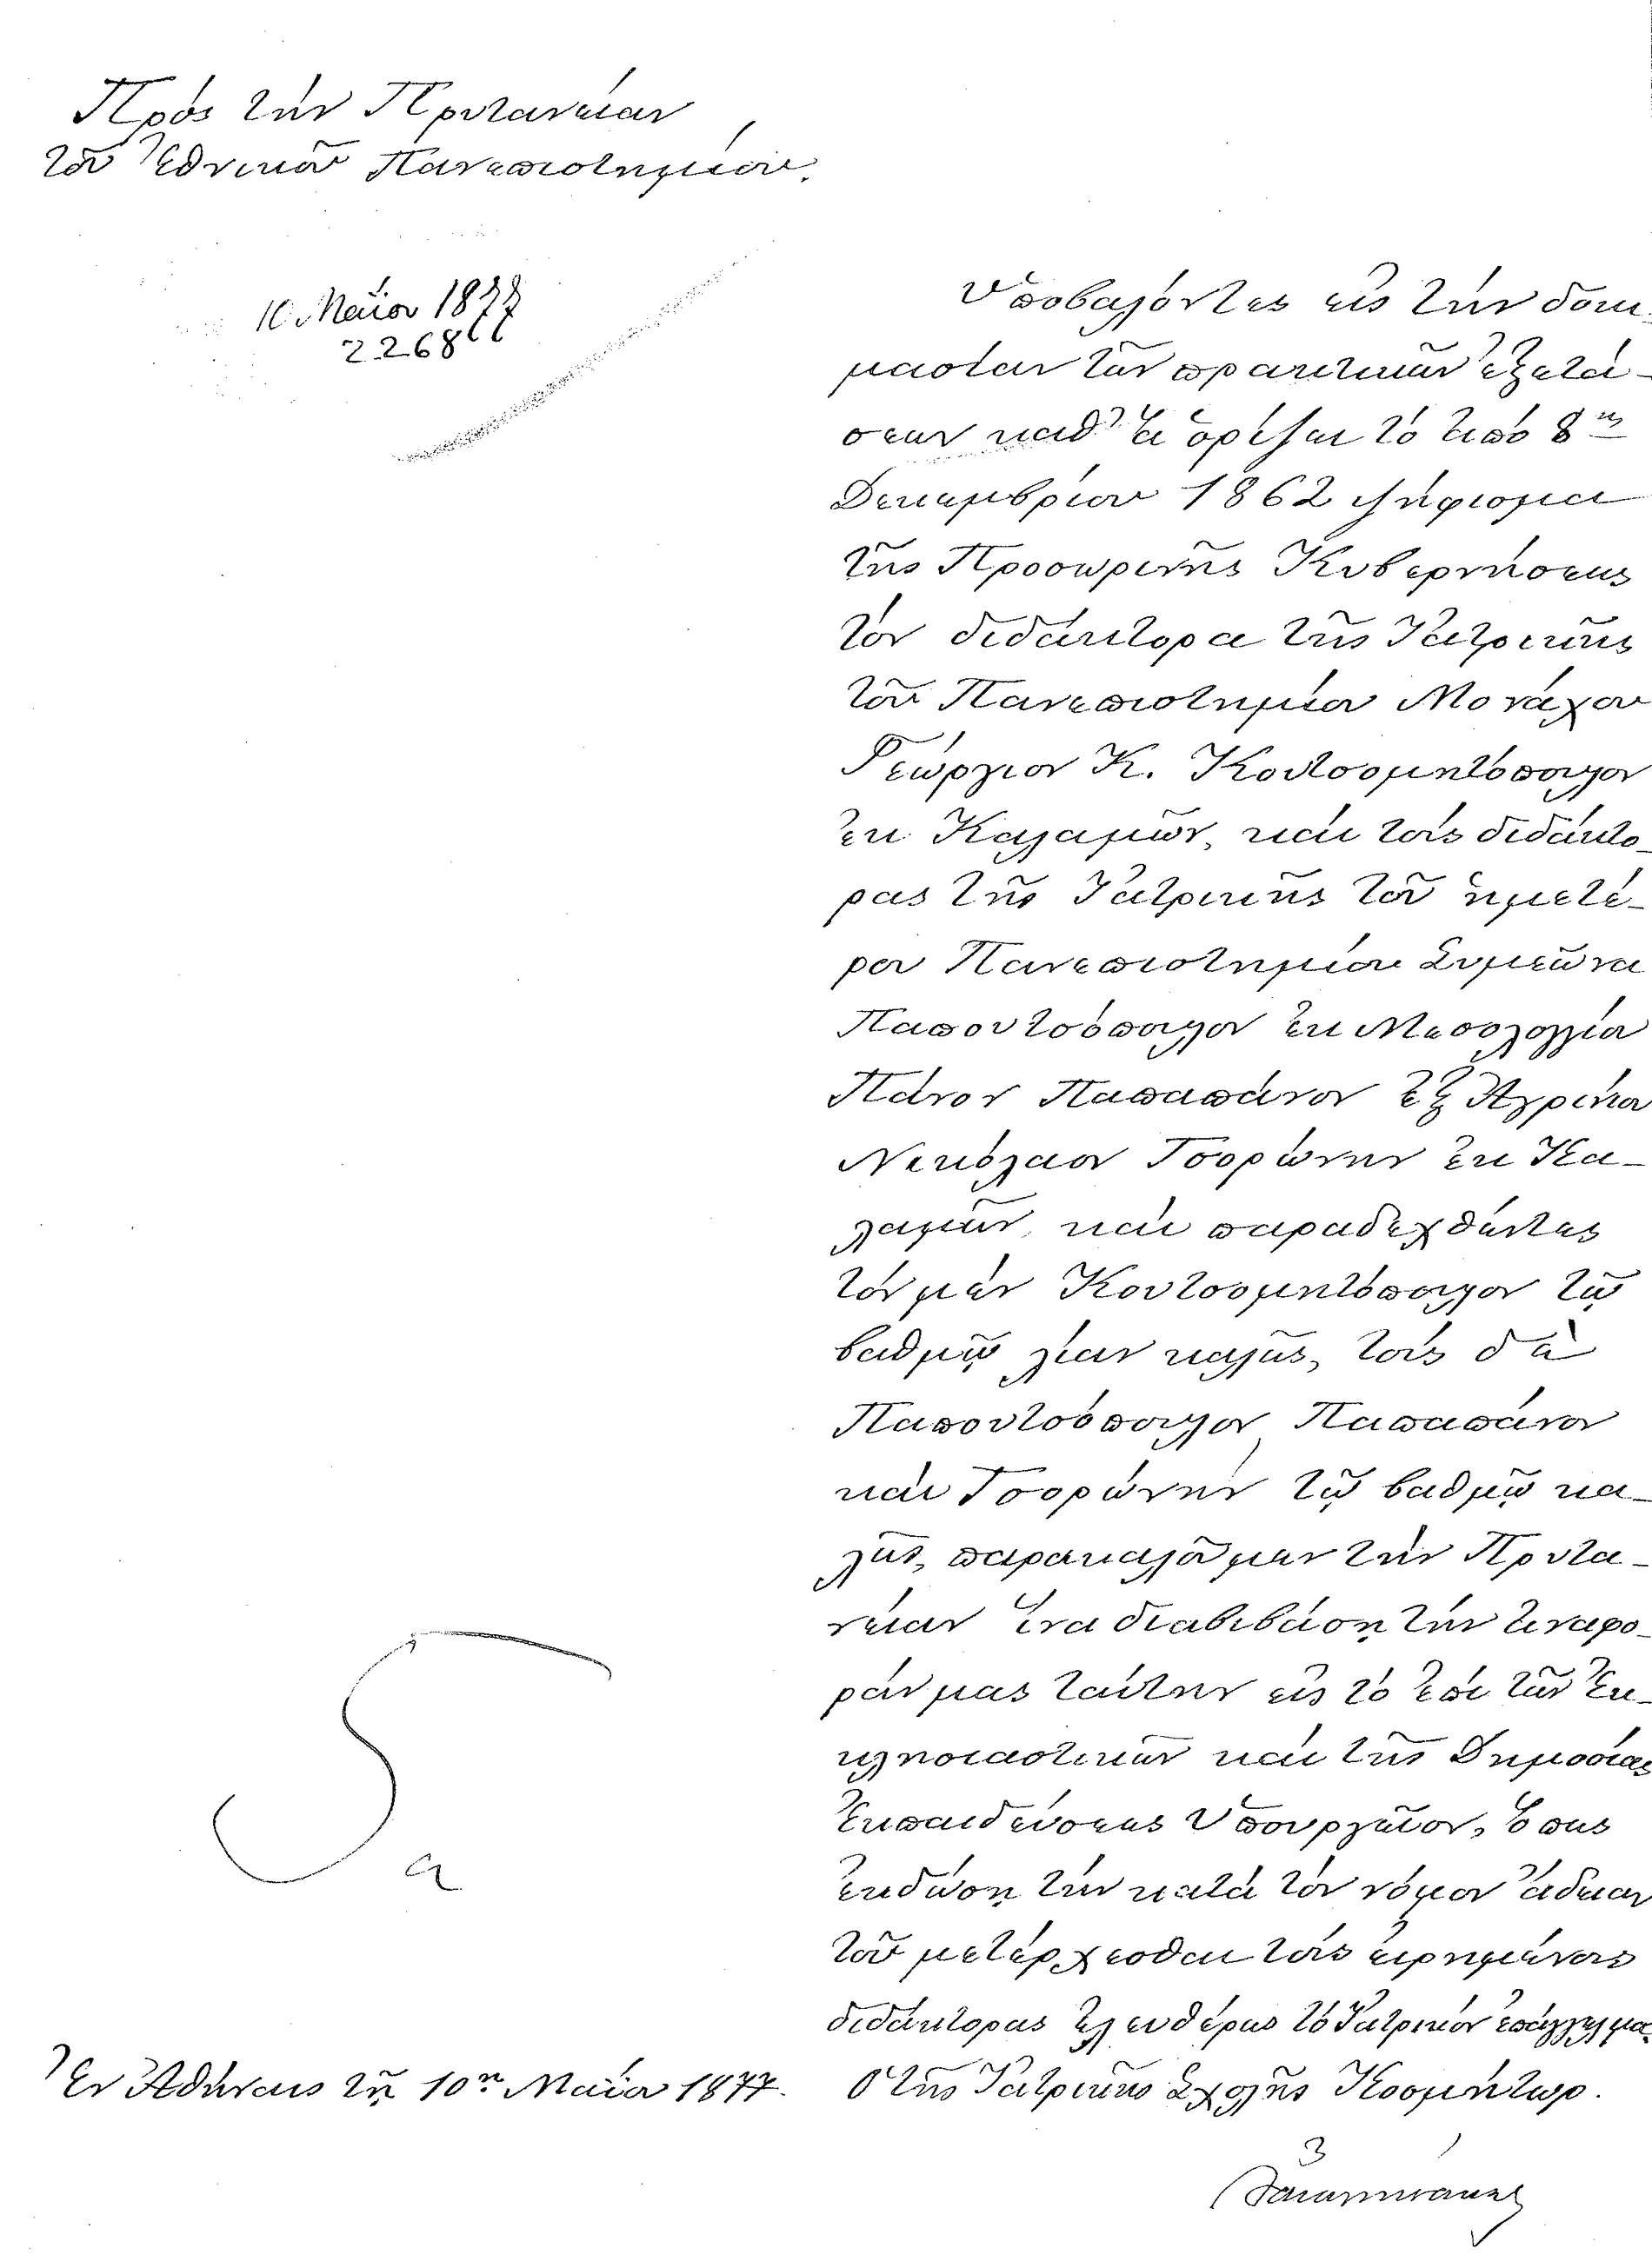 Πρὸς τὴν Πρυτανείαν
τοῦ Ἐθνικοῦ Πανεπιστημίου.
10 Μαΐου 1877
2268
Ὑποβαλόντες εἰς τὴν δοκι-
μασίαν τῶν πρακτικῶν ἐξετά-
σεων καθ' ἃ ὁρίζει τὸ ἀπὸ 8ης
Δεκεμβρίου 1862 ψήφισμα
τῆς Προσωρινῆς Κυβερνήσεως
τὸν διδάκτορα τῆς Ἰατρικῆς
τοῦ Πανεπιστημίου Μονάχου
Γεώργιον Κ. Κουτσομητόπουλον
ἐκ Καλαμῶν, καὶ τοὺς διδάκτο-
ρας τῆς Ἰατρικῆς τοῦ ἡμετέ-
ρου Πανεπιστημίου Συμεῶνα
Παπουτσόπουλον ἐκ Μεσολογγίου
Πάνον Παπαπάνου ἐξ Ἀγρινίου
Νικόλαον Τσορώνην ἐκ Κα-
λαμῶν, καὶ παραδεχθέντες
τὸν μὲν Κουτσομητόπουλον τῷ
βαθμῷ λίαν καλῶς, τοὺς δὲ
Παπουτσόπουλον Παπαπάνου
καὶ Τσορώνην τῷ βαθμῷ κα-
λῶς, παρακαλοῦμεν τὴν Πρυτα-
νείαν ἵνα διαβιβάσῃ τὴν ἀναφο-
ράν μας ταύτην εἰς τὸ ἐπὶ τῶν Ἐκ-
κλησιαστικῶν καὶ τῆς Δημοσίας
Ἐκπαιδεύσεως Ὑπουργεῖον, ὅπως
ἐκδώσῃ τὴν κατὰ τὸν νόμον ἄδειαν
τοῦ μετέρχεσθαι τοὺς εἰρημένους
διδάκτορας ἐλευθέρως τὸ Ἰατρικὸν ἐπάγγελμα.
Ἐν Ἀθήναις τῇ 10ῃ Μαΐου 1877. Ὁ τῆς Ἰατρικῆς Σχολῆς Κοσμήτωρ.